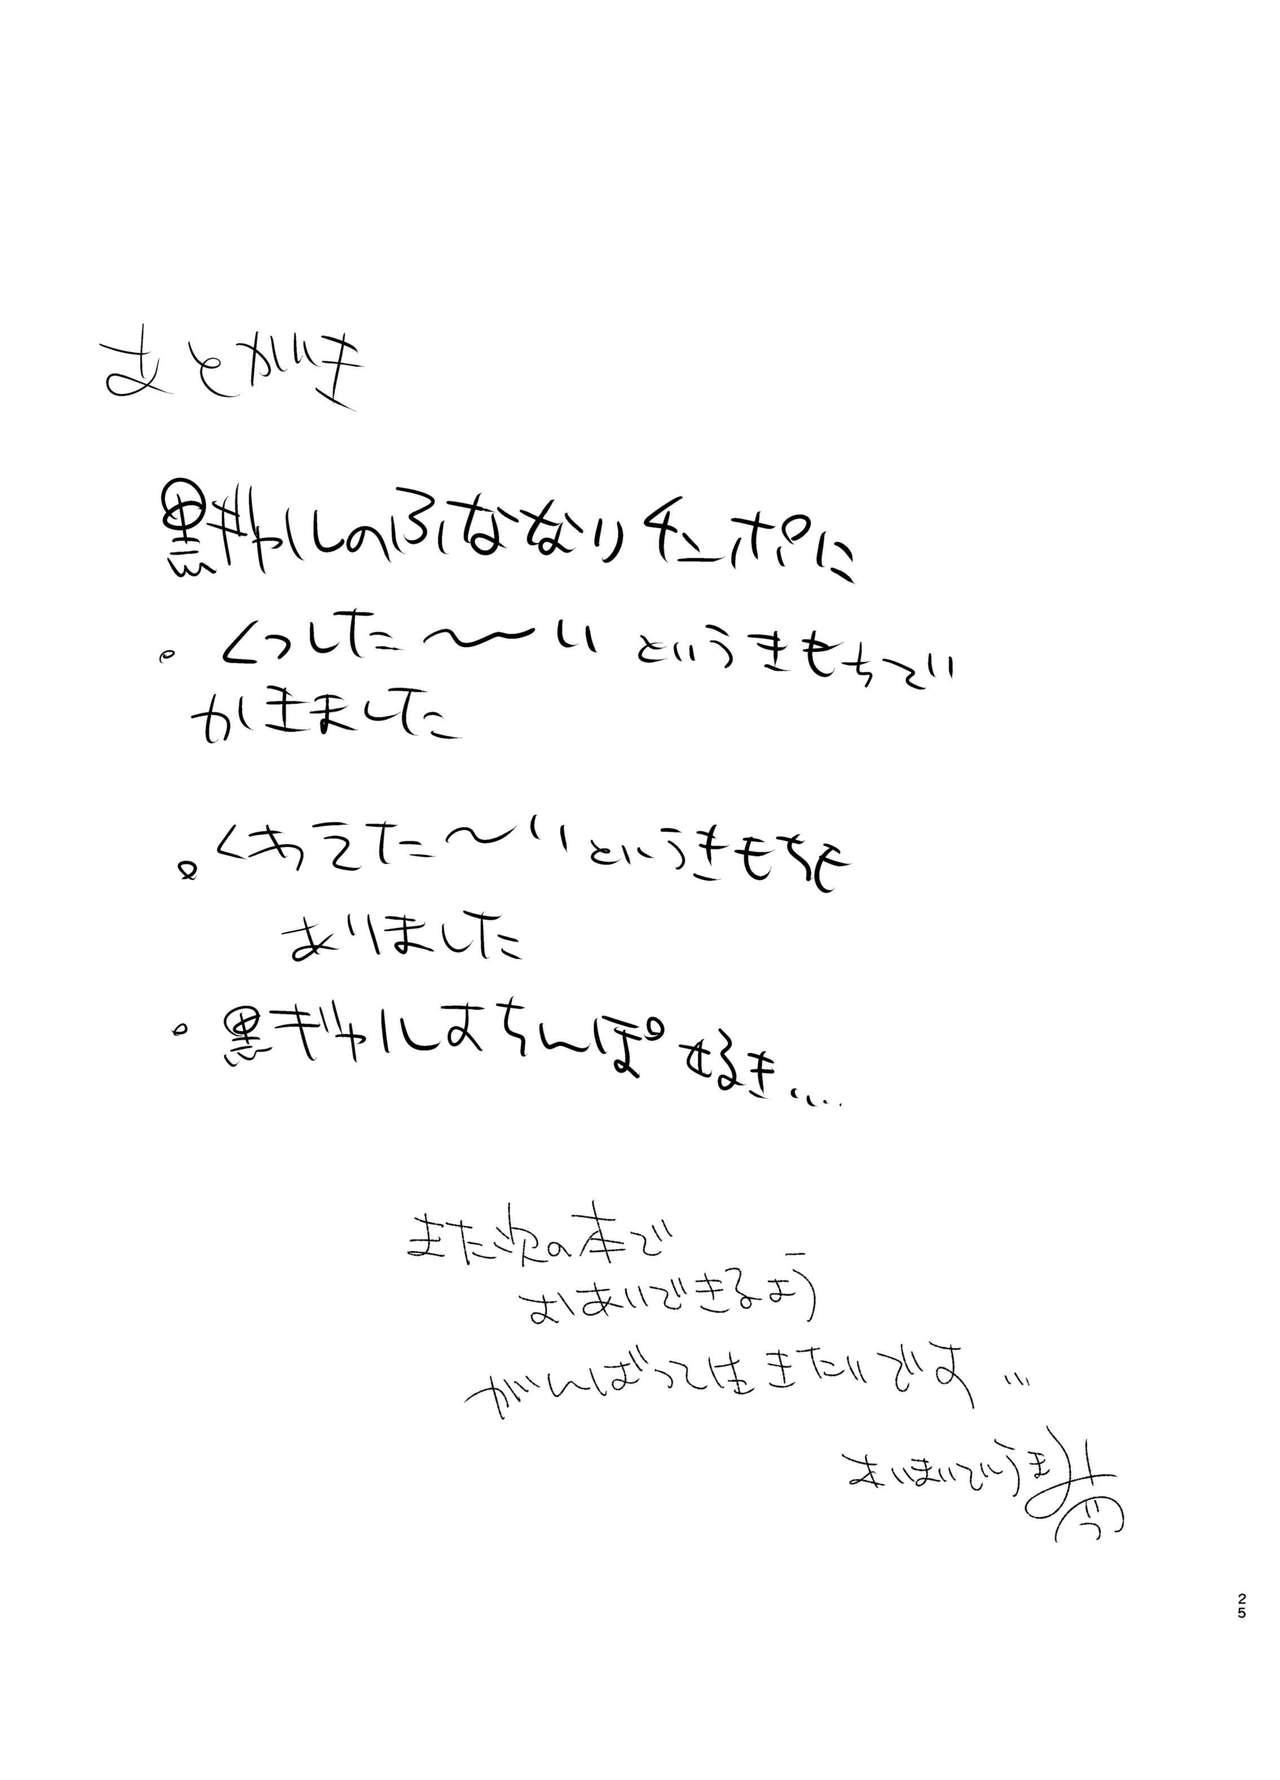 あとがき
黒ギャルのふたなりチンポに
・くっした～～い というきもちで
かきました
・くわえた～いというきもちも
ありました
・黒ギャルおちんぽ 好き….
また次の本で
おあいできるよう
がんばって生きたいです…
25